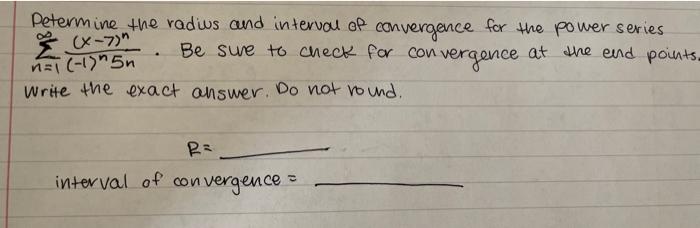 Determine the radius and interval of convergence for the power series
∞ Σ n=1 (x-7)^n / (-1)^n 5n . Be sure to check for convergence at the end points.
Write the exact answer. Do not round.
R= ______
interval of convergence = ______